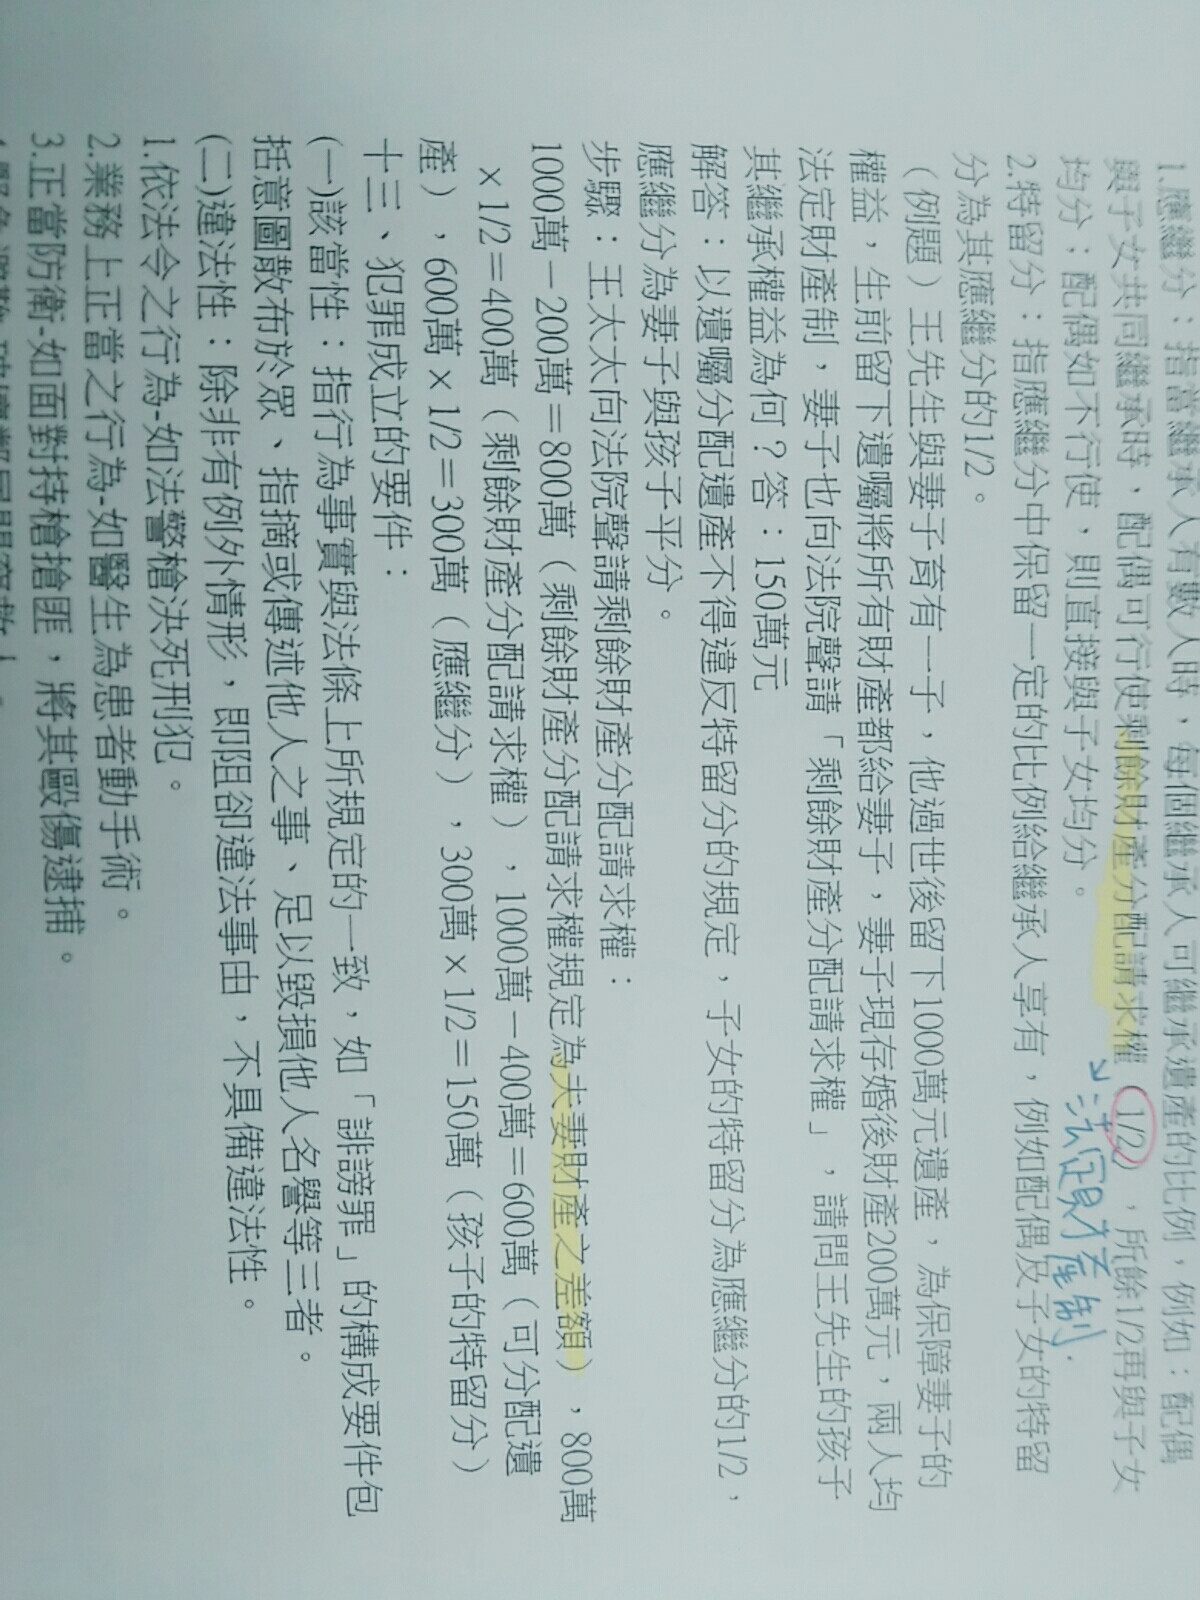 1.應繼分：指當繼承人有數人時，每個繼承人可繼承遺產的比例，例如：配偶
與子女共同繼承時，配偶可行使剩餘財產分配請求權（1/2），所餘1/2再與子女
均分；配偶如不行使，則直接與子女均分。
↘法定財產制.
2.特留分：指應繼分中保留一定的比例給繼承人享有，例如配偶及子女的特留
分為其應繼分的1/2。
（例題）王先生與妻子育有一子，他過世後留下1000萬元遺產，為保障妻子的
權益，生前留下遺囑將所有財產都給妻子，妻子現存婚後財產200萬元，兩人均
法定財產制，妻子也向法院聲請「剩餘財產分配請求權」，請問王先生的孩子
其繼承權益為何？答：150萬元
解答：以遺囑分配遺產不得違反特留分的規定，子女的特留分為應繼分的1/2，
應繼分為妻子與孩子平分。
步驟：王太太向法院聲請剩餘財產分配請求權：
1000萬－200萬＝800萬（剩餘財產分配請求權規定為夫妻財產之差額），800萬
×1/2＝400萬（剩餘財產分配請求權），1000萬－400萬＝600萬（可分配遺
產），600萬×1/2＝300萬（應繼分），300萬×1/2＝150萬（孩子的特留分）
十三、犯罪成立的要件：
(一)該當性：指行為事實與法條上所規定的一致，如「誹謗罪」的構成要件包
括意圖散布於眾、指摘或傳述他人之事、足以毀損他人名譽等三者。
(二)違法性：除非有例外情形，即阻卻違法事由，不具備違法性。
1.依法令之行為-如法警槍決死刑犯。
2.業務上正當之行為-如醫生為患者動手術。
3.正當防衛-如面對持槍搶匪，將其毆傷逮捕。